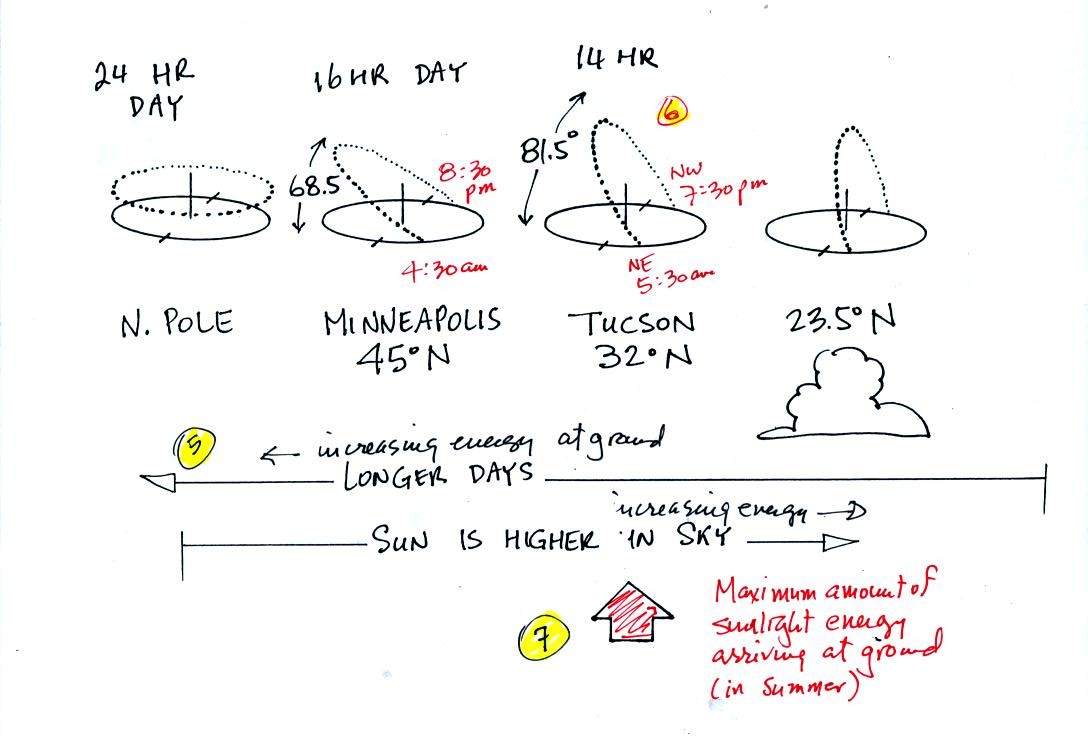 24 HR
DAY
16 HR DAY
14 HR
6
68.5
81.5°
8:30
pm
NW
7:30pm
4:30am
NE
5:30am
N. POLE
MINNEAPOLIS
45°N
TUCSON
32°N
23.5°N
5
← increasing energy at ground
LONGER DAYS
increasing energy →
SUN IS HIGHER IN SKY
7
Maximum amount of
sunlight energy
arriving at ground
(in summer)